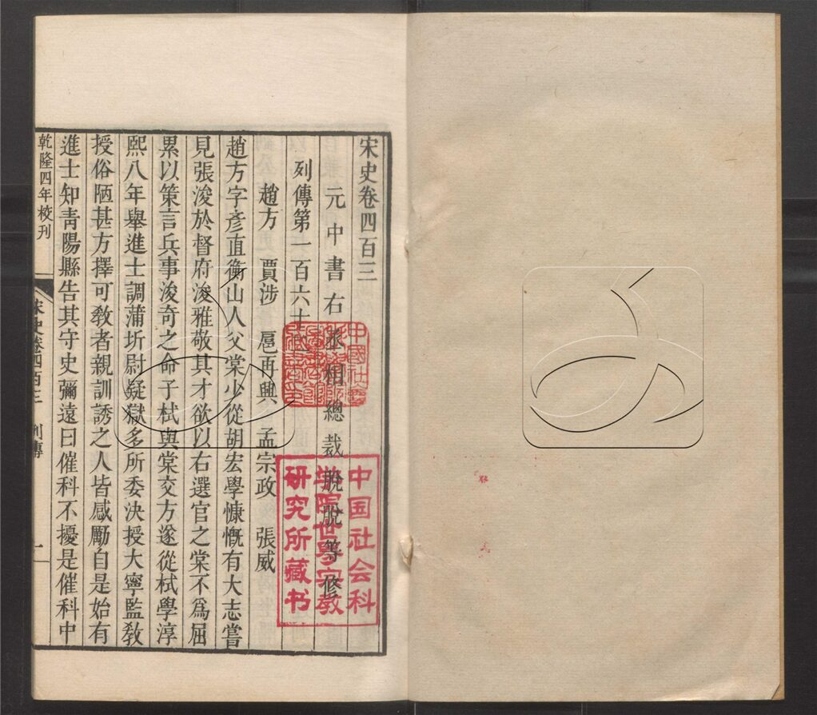 宋史卷四百三
元中書右丞相總裁脫脫等修
列傳第一百六十二
趙方 賈涉 扈再興 孟宗政 張威
趙方字彥直衡山人父棠少從胡宏學慷慨有大志嘗
見張浚於督府浚雅敬其才欲以右選官之棠不爲屈
累以策言兵事浚奇之命子栻與棠交方遂從栻學淳
熙八年舉進士調蒲圻尉疑獄多所委決授大寧監敎
授俗陋甚方擇可敎者親訓誘之人皆感勵自是始有
進士知靑陽縣告其守史彌遠曰催科不擾是催科中
乾隆四年校刊
宋史卷四百三 列傳
一
中国社会科
学院世界宗教
研究所藏书